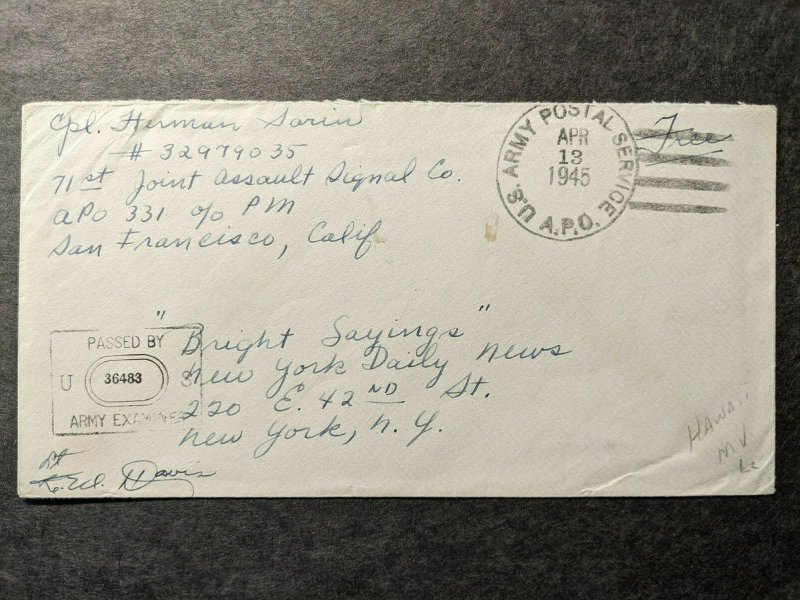 Cpl. Herman Sorin
# 32979035
71st Joint Assault Signal Co.
APO 331 c/o PM
San Francisco, Calif
U.S. ARMY POSTAL SERVICE
APR
13
1945
A.P.O.
Free
"Bright Sayings"
New York Daily News
220 E. 42ND St.
New York, N.Y.
PASSED BY
U 36483 S
ARMY EXAMINER
Lt
Davis
HAWAII